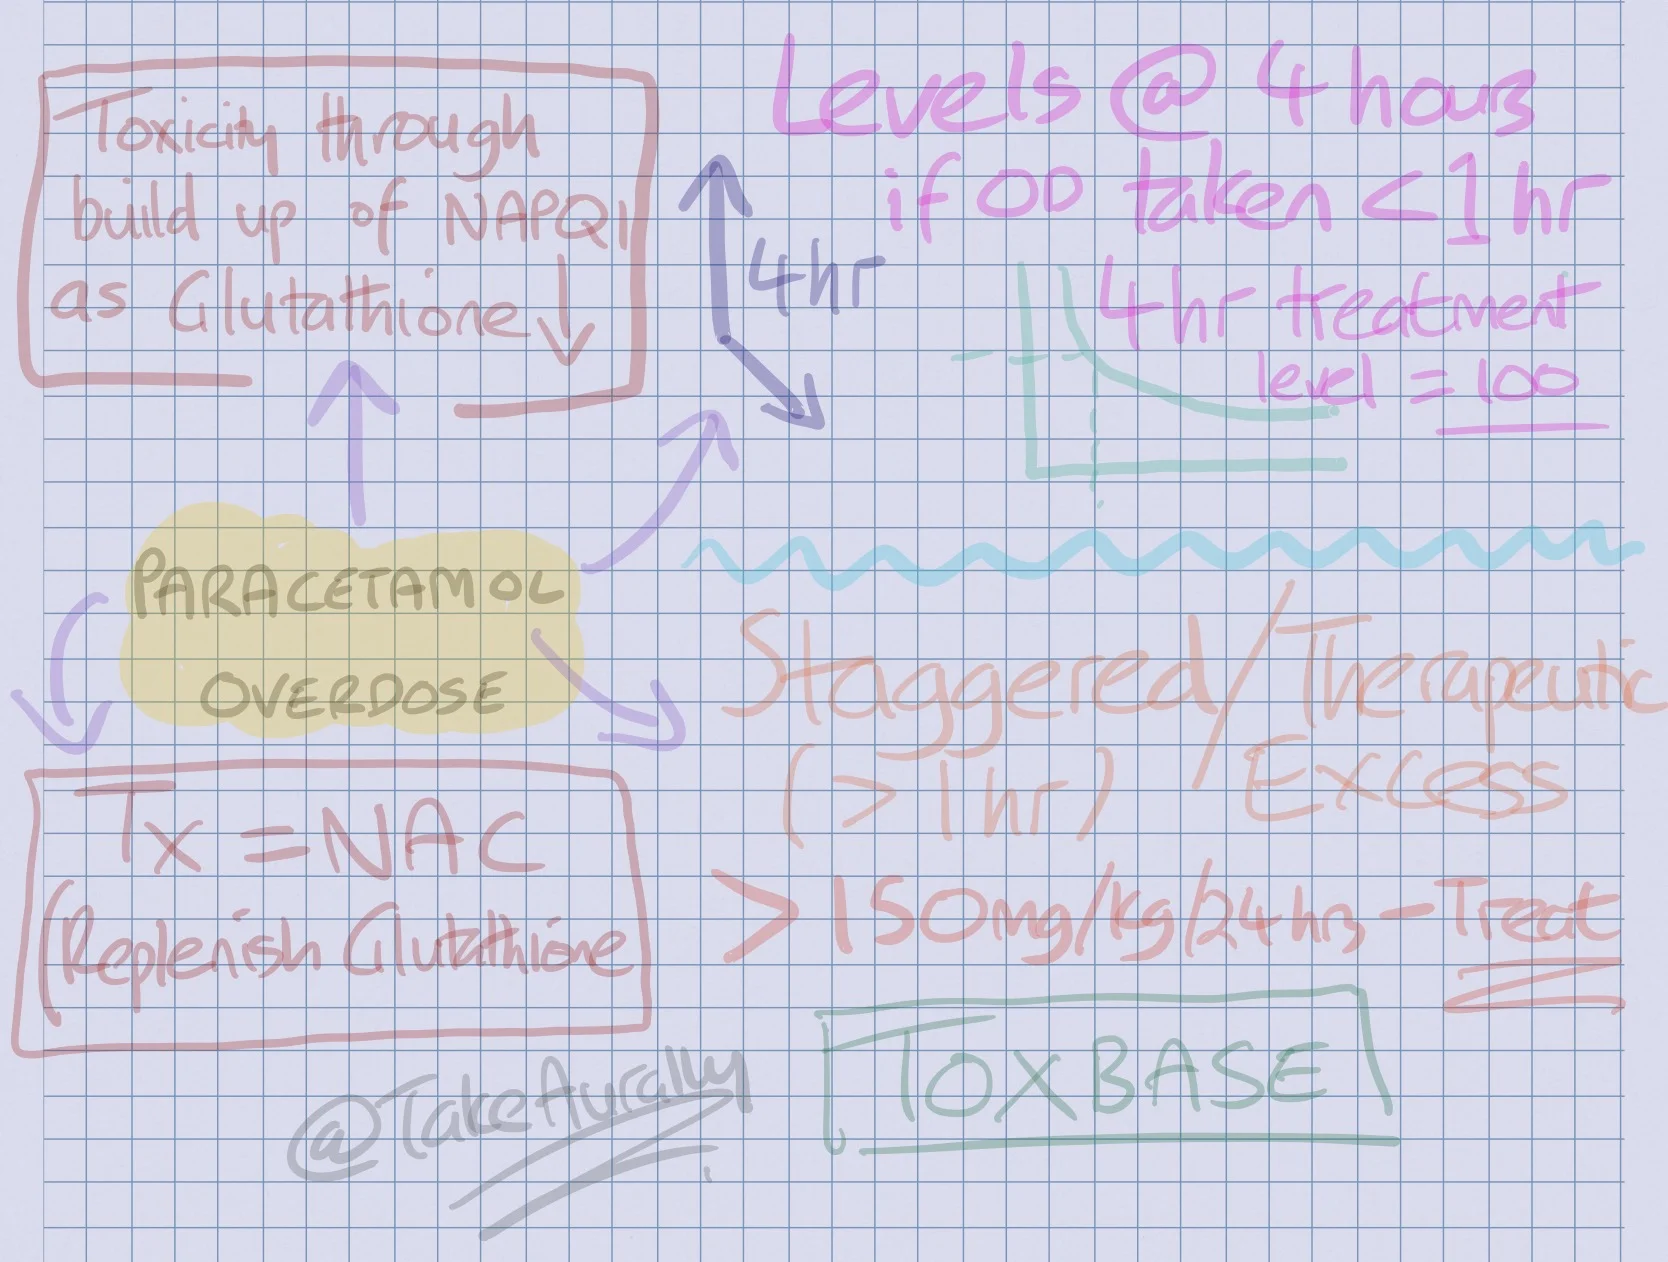 Toxicity through
build up of NAPQI
as Glutathione ↓
Levels @ 4 hours
if OD taken < 1 hr
4hr
4hr treatment
level = 100
PARACETAMOL
OVERDOSE
Staggered/Therapeutic
(>1hr) Excess
>150mg/kg/24hrs - Treat
Tx = NAC
(Replenish Glutathione
TOXBASE
@TakeAurally